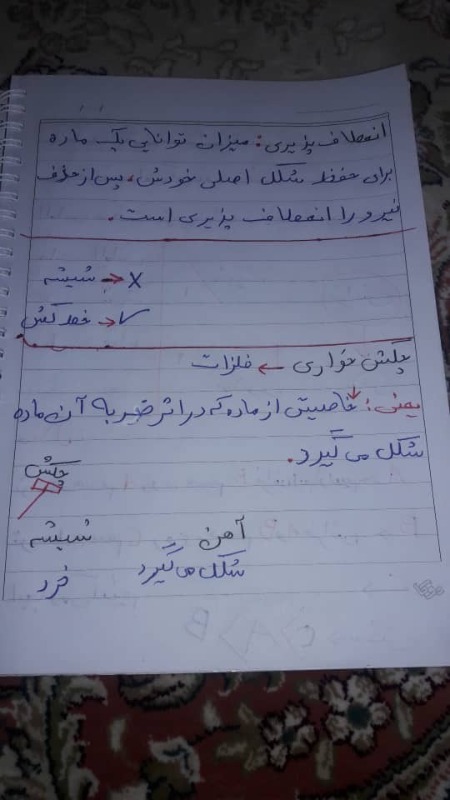 انعطاف پذیری: میزان توانایی یک ماده
برای حفظ شکل اصلی خودش، پس از حذف
نیرو را انعطاف پذیری است.
X → شیشه
✓ → خط کش
چکش خواری ← فلزات
یعنی: خاصیتی از ماده که در اثر ضربه آن ماده
شکل می گیرد.
چکش
آهن شیشه
شکل می گیرد خرد